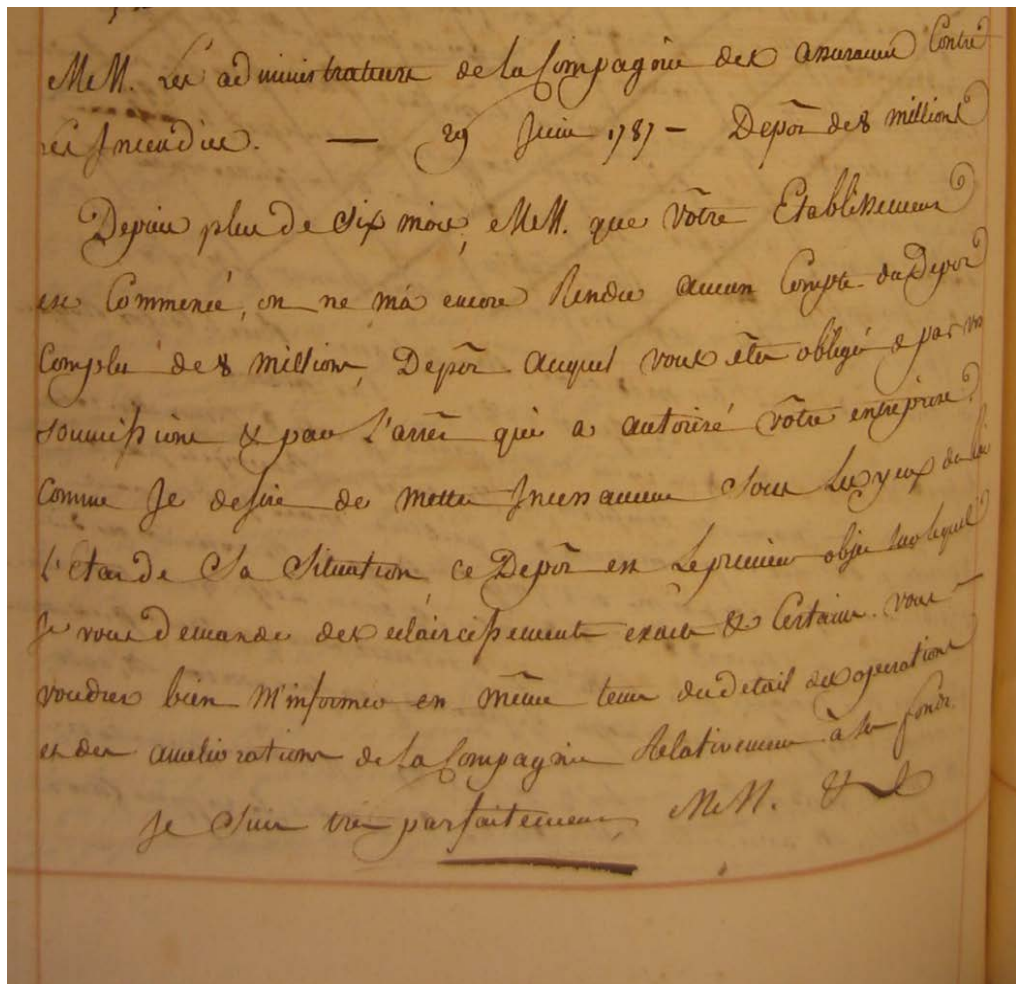 MeM. les administrateurs de la Compagnie des assurances Contre
les Incendies. — 29 Juin 1787 — Depôt de 8 millions
Depuis plus de six mois, MeM. que vôtre Etablissement
est Commencé, on ne m'a encore Rendu aucun Compte du Depot
Complet de 8 millions, Depôt auquel vous êtes obligés & par vos
soumissions & par l'arrêt qui a autorisé vôtre entreprise.
Comme Je desire de mettre Incessament sous les yeux du Roi
l'Etat de Sa Situation, ce Depôt est le premier objet sur lequel
Je vous demande des eclaircissements exacts & Certains. vous
voudrez bien M'informer en même tems du detail des operations
et des ameliorations de la Compagnie Relativement à ses fonds.
Je suis très parfaitement, MeM. &